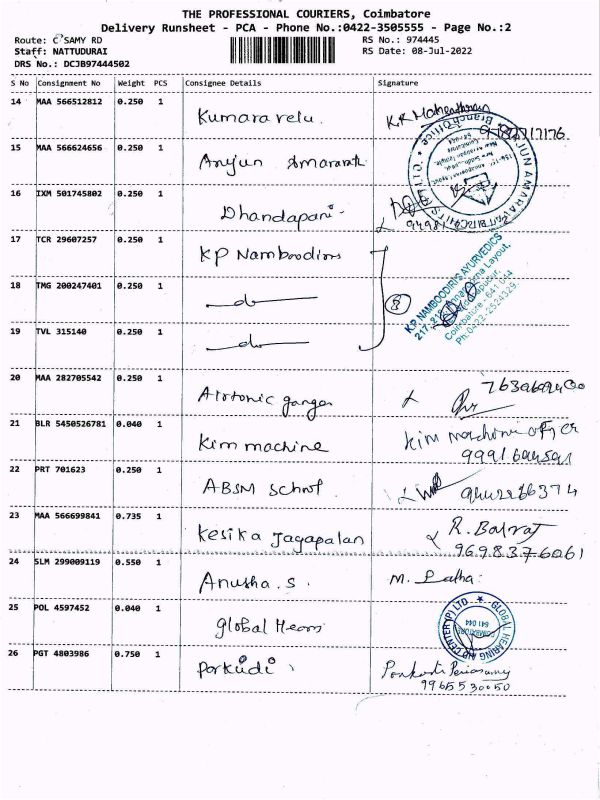 THE PROFESSIONAL COURIERS, Coimbatore
Delivery Runsheet - PCA - Phone No.:0422-3505555 - Page No.:2
Route: C SAMY RD
RS No.: 974445
Staff: NATTUDURAI
RS Date: 08-Jul-2022
DRS No.: DCJB97444502
S No Consignment No Weight PCS Consignee Details Signature
14 MAA 566512812 0.250 1 Kumaravelu.
15 MAA 566624656 0.250 1 Arujun Amararath
16 IXM 501745802 0.250 1 Dhandapani-
17 TCR 29607257 0.250 1 KP Namboodiris
18 TMG 200247401 0.250 1 do
19 TVL 315140 0.250 1 do
K.P. NAMBOODIRI'S AYURVEDICS
Coimbatore - 641 044
Ph: 0422-2524329.
20 MAA 282705542 0.250 1
21 BLR 5450526781 0.040 1 Kim machine Kim machine
22 PRT 701623 0.250 1 ABSM School
23 MAA 566699841 0.735 1 Kesika Jagapalan R.
9698376061
24 SLM 299009119 0.550 1 Anusha.S. M. Latha.
25 POL 4597452 0.040 1 Global Hears
GLOBAL HEARING AND CENTER (P) LTD
COIMBATORE
641 044
26 PGT 4803986 0.750 1 Porkodi Porkodi Periasamy
9965530050